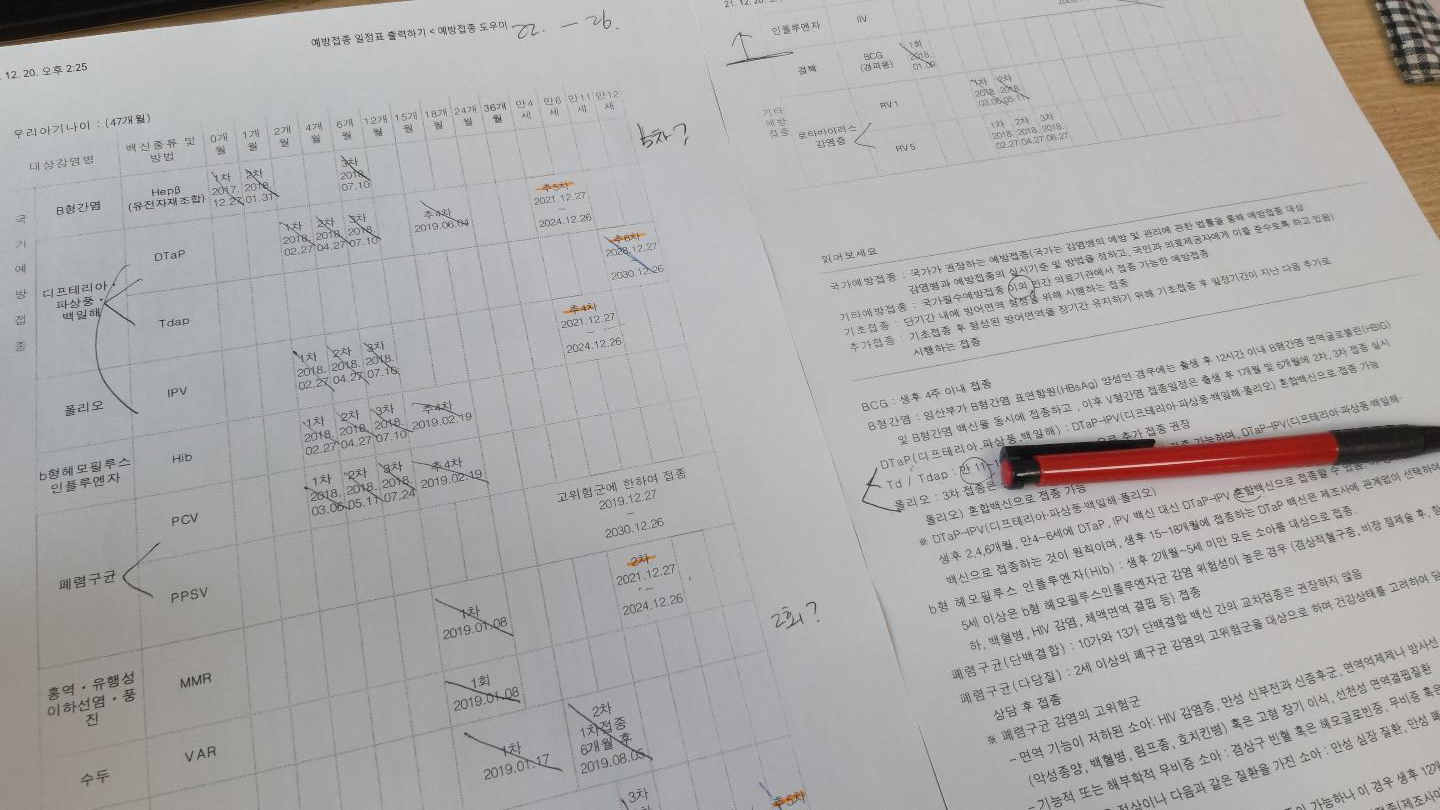 12. 20. 오후 2:25
예방접종 일정표 출력하기 < 예방접종 도우미
22. - 26.
우리아기나이 : (47개월)
대상감염병
백신종류 및
방법
0개
월
1개
월
2개
월
4개
월
6개
월
12개
월
15개
월
18개
월
24개
월
36개
월
만4
세
만6
세
만11
세
만12
세
국
가
예
방
접
종
B형간염
HepB
(유전자재조합)
1차
2017.
12.27
2차
2018.
01.31
3차
2018.
07.10
디프테리아·
파상풍·
백일해
DTaP
1차
2018.
02.27
2차
2018.
04.27
3차
2018.
07.10
추4차
2019.06.04
추5차
2021.12.27
~
2024.12.26
Tdap
추6차
2028.12.27
~
2030.12.26
폴리오
IPV
1차
2018.
02.27
2차
2018.
04.27
3차
2018.
07.10
추4차
2021.12.27
~
2024.12.26
b형헤모필루스
인플루엔자
Hib
1차
2018.
02.27
2차
2018.
04.27
3차
2018.
07.10
추4차
2019.02.19
폐렴구균
PCV
1차
2018.
03.06
2차
2018.
05.11
3차
2018.
07.24
추4차
2019.02.19
PPSV
고위험군에 한하여 접종
2019.12.27
~
2030.12.26
홍역·유행성
이하선염·풍
진
MMR
1차
2019.01.08
2차
2021.12.27
~
2024.12.26
2회?
수두
VAR
1회
2019.01.08
1차
2019.01.17
2차
1차접종
6개월 후
2019.08.05
3차
추5차
인플루엔자
IIV
결핵
BCG
(경피용)
1회
2018.
01.09
기타
예방
접종
로타바이러스
감염증
RV1
1차
2018.
03.06
2차
2018.
05.11
RV5
1차
2018.
02.27
2차
2018.
04.27
3차
2018.
06.27
읽어보세요
국가예방접종 : 국가가 권장하는 예방접종(국가는 감염병의 예방 및 관리에 관한 법률을 통해 예방접종 대상
감염병과 예방접종의 실시기준 및 방법을 정하고, 국민과 의료제공자에게 이를 준수토록 하고 있음)
기타예방접종 : 국가필수예방접종 이외 민간 의료기관에서 접종 가능한 예방접종
기초접종 : 단기간 내에 방어면역 형성을 위해 시행하는 접종
추가접종 : 기초접종 후 형성된 방어면역을 장기간 유지하기 위해 기초접종 후 일정기간이 지난 다음 추가로
시행하는 접종
BCG : 생후 4주 이내 접종
B형간염 : 임산부가 B형간염 표면항원(HBsAg) 양성인 경우에는 출생 후 12시간 이내 B형간염 면역글로불린(HBIG)
및 B형간염 백신을 동시에 접종하고, 이후 B형간염 접종일정은 출생 후 1개월 및 6개월에 2차, 3차 접종 실시
DTaP(디프테리아·파상풍·백일해) : DTaP-IPV(디프테리아·파상풍·백일해·폴리오) 혼합백신으로 접종 가능
Td / Tdap : 만 11~1
으로 추가 접종 권장
폴리오 : 3차 접종은
접종 가능하며, DTaP-IPV(디프테리아·파상풍·백일해·
폴리오) 혼합백신으로 접종 가능
※ DTaP-IPV(디프테리아·파상풍·백일해·폴리오)
생후 2,4,6개월, 만4~6세에 DTaP, IPV 백신 대신 DTaP-IPV 혼합백신으로 접종할 수 있음
백신으로 접종하는 것이 원칙이며, 생후 15~18개월에 접종하는 DTaP 백신은 제조사에 관계없이 선택하여
b형 헤모필루스 인플루엔자(Hib) : 생후 2개월~5세 미만 모든 소아를 대상으로 접종.
5세 이상은 b형 헤모필루스인플루엔자균 감염 위험성이 높은 경우 (겸상적혈구증, 비장 절제술 후, 항
하, 백혈병, HIV 감염, 체액면역 결핍 등) 접종
폐렴구균(단백결합) : 10가와 13가 단백결합 백신 간의 교차접종은 권장하지 않음
폐렴구균(다당질) : 2세 이상의 폐구균 감염의 고위험군을 대상으로 하며 건강상태를 고려하여 담
상담 후 접종
※ 폐렴구균 감염의 고위험군
- 면역 기능이 저하된 소아: HIV 감염증, 만성 신부전과 신증후군, 면역억제제나 방사선
(악성종양, 백혈병, 림프종, 호치킨병) 혹은 고형 장기 이식, 선천성 면역결핍질환
- 기능적 또는 해부학적 무비증 소아 : 겸상구 빈혈 혹은 헤모글로빈증, 무비증 혹은
정상이나 다음과 같은 질환을 가진 소아 : 만성 심장 질환, 만성 폐